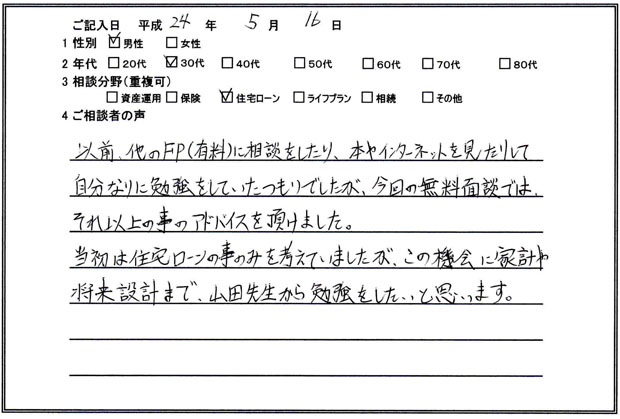 ご記入日 平成 24 年 5 月 16 日
1 性別 ☑男性 □女性
2 年代 □20代 ☑30代 □40代 □50代 □60代 □70代 □80代
3 相談分野(重複可)
□資産運用 □保険 ☑住宅ローン □ライフプラン □相続 □その他
4 ご相談者の声
以前、他のFP(有料)に相談をしたり、本やインターネットを見たりして
自分なりに勉強をしていたつもりでしたが、今回の無料面談では、
それ以上の事のアドバイスを頂けました。
当初は住宅ローンの事のみを考えていましたが、この機会に家計や
将来設計まで、山田先生から勉強をしたいと思います。